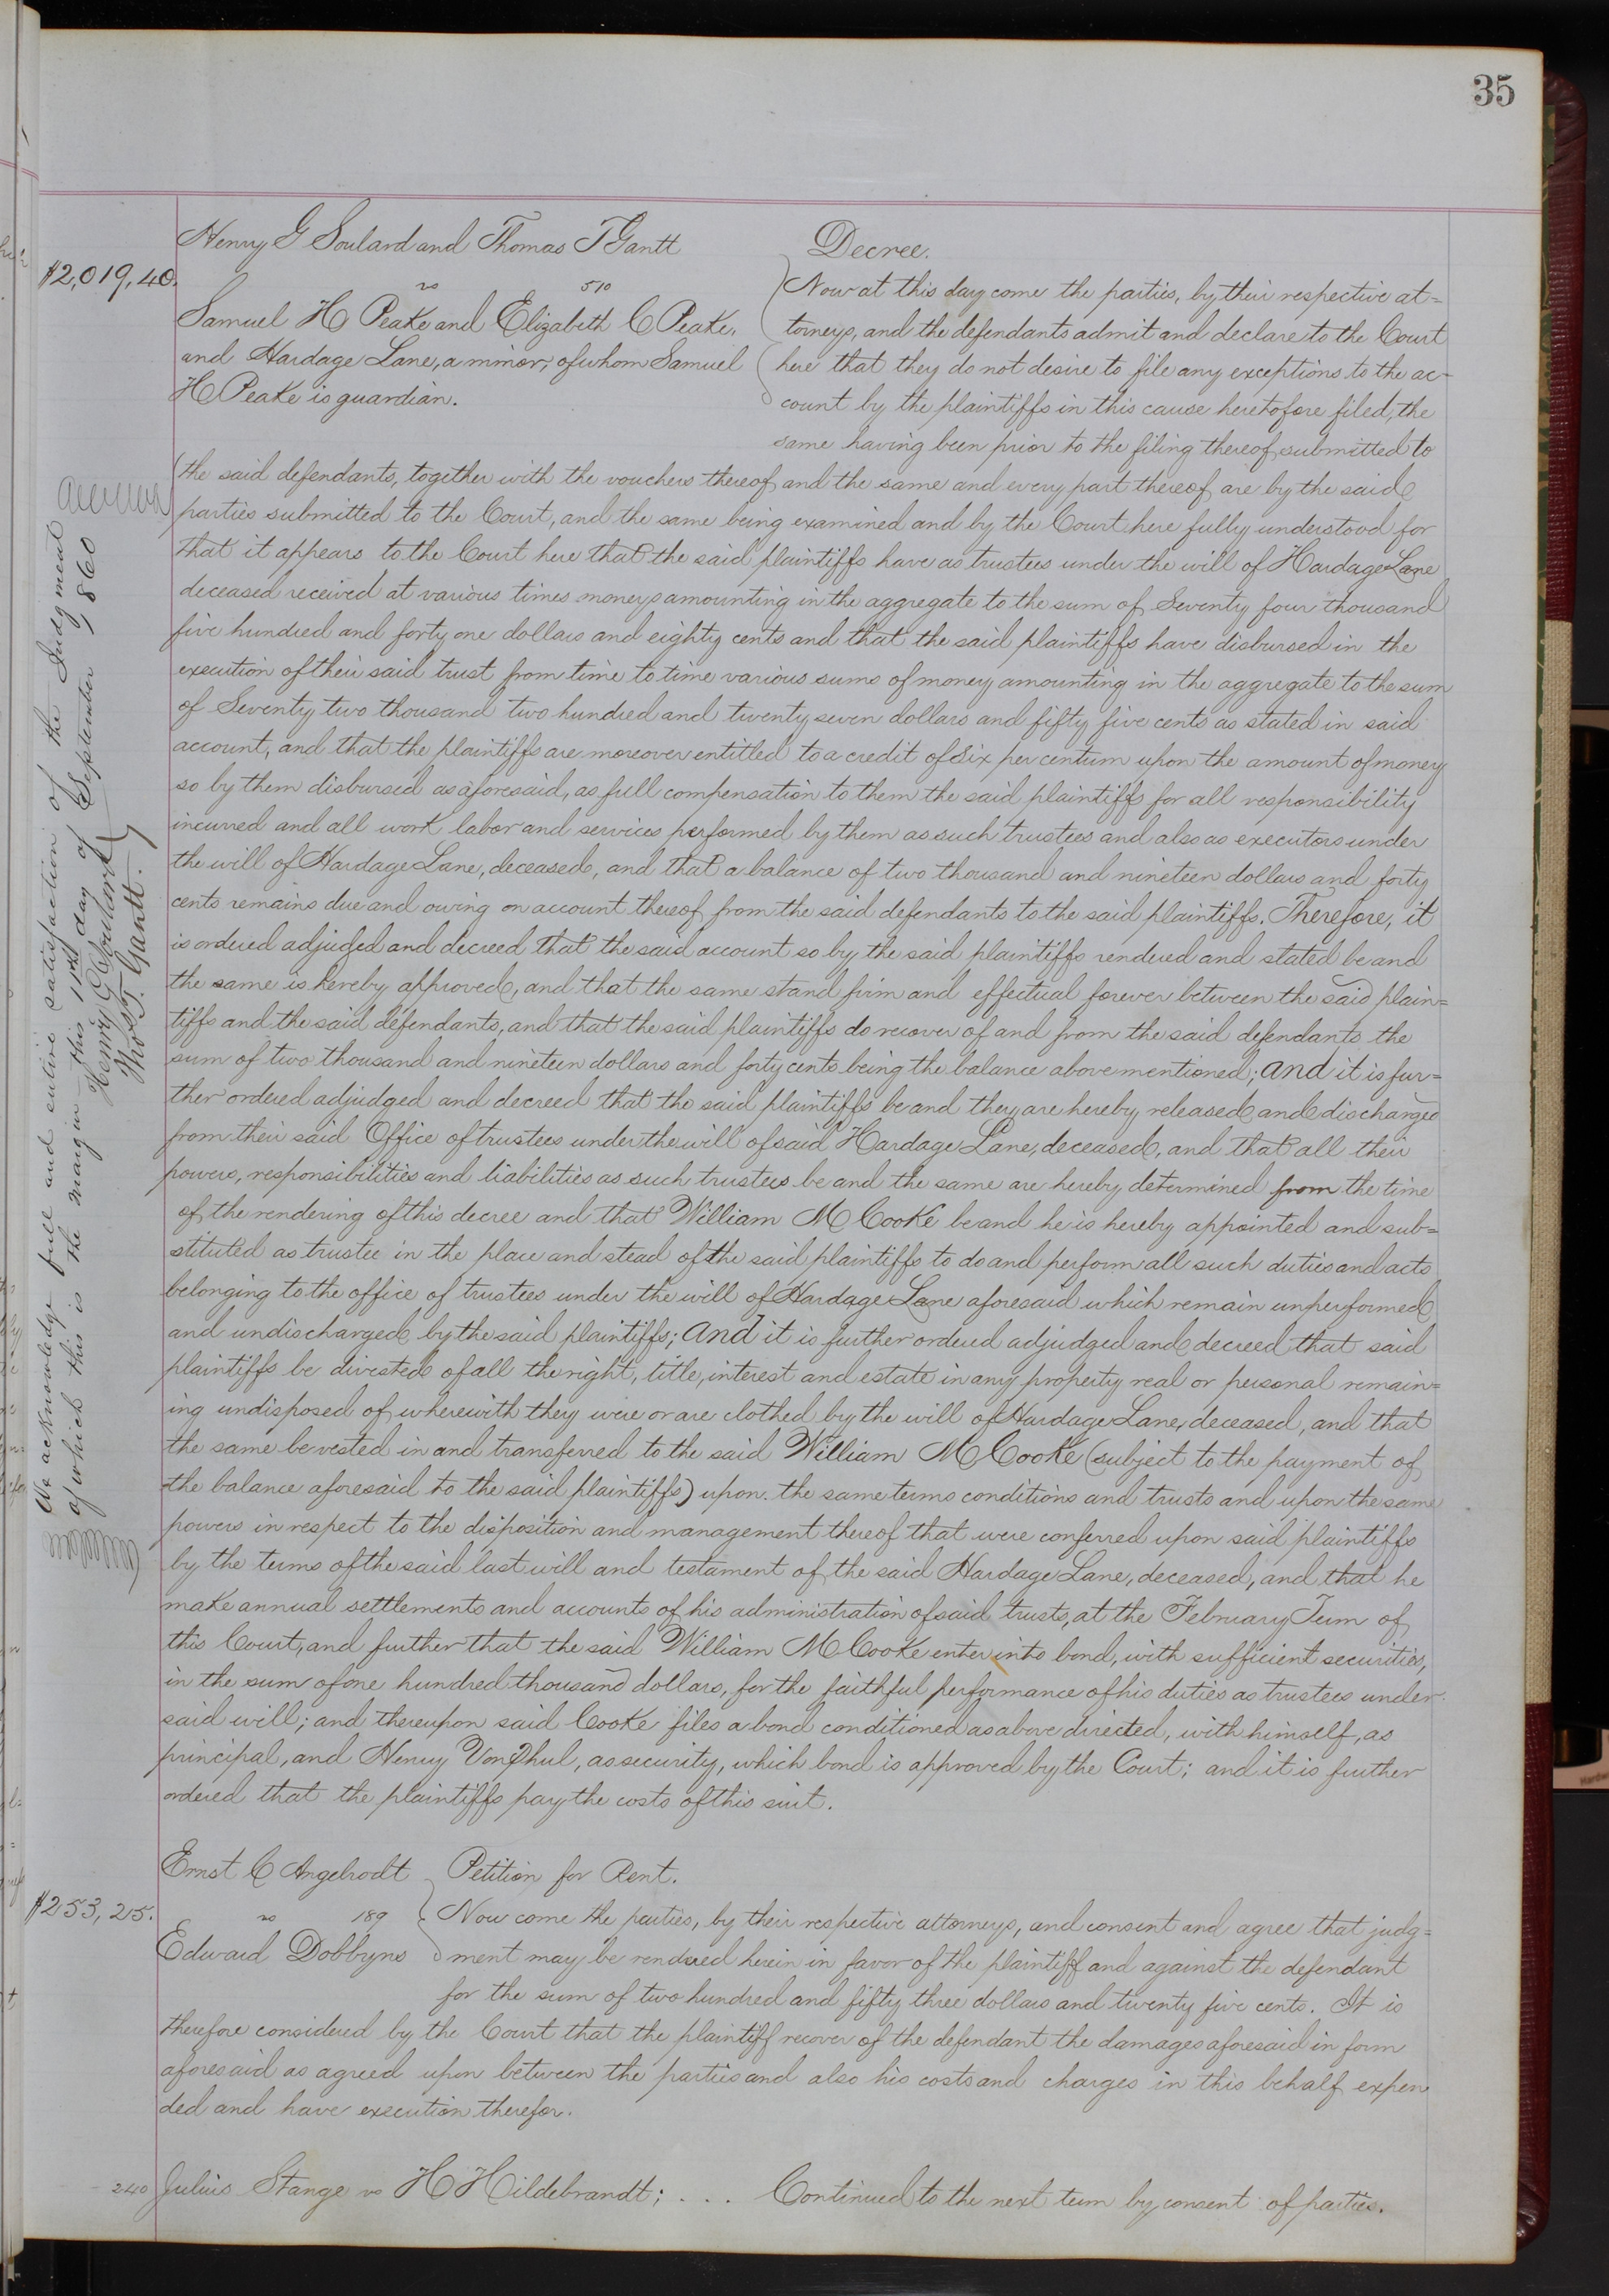 35
Henry G Soulard and Thomas T Gantt
$2,019,40.
vs 510
Samuel H Peake and Elizabeth C Peake,
and Hardage Lane, a minor, of whom Samuel
H Peake is guardian.
Decree.
Now at this day come the parties, by their respective at=
torneys, and the defendants admit and declare to the Court
here that they do not desire to file any exceptions to the ac-
count by the plaintiffs in this cause heretofore filed, the
same having been prior to the filing thereof submitted to
the said defendants, together with the vouchers thereof and the same and every part thereof are by the said
parties submitted to the Court, and the same being examined and by the Court here fully understood for
that it appears to the Court here that the said plaintiffs have as trustees under the will of Hardage Lane
deceased received at various times moneys amounting in the aggregate to the sum of Seventy four thousand
five hundred and forty one dollars and eighty cents and that the said plaintiffs have disbursed in the
execution of their said trust from time to time various sums of money amounting in the aggregate to the sum
of Seventy two thousand two hundred and twenty seven dollars and fifty five cents as stated in said
account, and that the plaintiffs are moreover entitled to a credit of six per centum upon the amount of money
so by them disbursed as aforesaid, as full compensation to them the said plaintiffs for all responsibility
incurred and all work labor and services performed by them as such trustees and also as executors under
the will of Hardage Lane, deceased, and that a balance of two thousand and nineteen dollars and forty
cents remains due and owing on account thereof from the said defendants to the said plaintiffs. Therefore, it
is ordered adjudged and decreed that the said account so by the said plaintiffs rendered and stated be and
the same is hereby approved, and that the same stand firm and effectual forever between the said plain=
tiffs and the said defendants, and that the said plaintiffs do recover of and from the said defendants the
sum of two thousand and nineteen dollars and forty cents being the balance above mentioned; and it is fur=
ther ordered adjudged and decreed that the said plaintiffs be and they are hereby released and discharged
from their said Office of trustees under the will of said Hardage Lane, deceased, and that all their
powers, responsibilities and liabilities as such trustees be and the same are hereby determined from the time
of the rendering of this decree and that William M Cooke be and he is hereby appointed and sub=
stituted as trustee in the place and stead of the said plaintiffs to do and perform all such duties and acts
belonging to the office of trustees under the will of Hardage Lane aforesaid which remain unperformed
and undischarged by the said plaintiffs; and it is further ordered adjudged and decreed that said
plaintiffs be divested of all the right, title, interest and estate in any property real or personal remain=
ing undisposed of wherewith they were or are clothed by the will of Hardage Lane, deceased, and that
the same be vested in and transferred to the said William M Cooke (subject to the payment of
the balance aforesaid to the said plaintiffs) upon the same terms conditions and trusts and upon the same
powers in respect to the disposition and management thereof that were conferred upon said plaintiffs
by the terms of the said last will and testament of the said Hardage Lane, deceased, and that he
make annual settlements and accounts of his administration of said trusts, at the February Term of
this Court, and further that the said William M Cooke enter into bond, with sufficient securities,
in the sum of one hundred thousand dollars, for the faithful performance of his duties as trustees under
said will; and thereupon said Cooke files a bond conditioned as above directed, with himself, as
principal, and Henry Von Phul, as security, which bond is approved by the Court; and it is further
ordered that the plaintiffs pay the costs of this suit.
We acknowledge full and entire satisfaction of the Judgment
of which this is the margin this 11th day of September 1860
Henry G Soulard
Thos T. Gantt.
Ernst C Angelrodt
$253,25.
vs 189
Edward Dobbyns
Petition for Rent.
Now come the parties, by their respective attorneys, and consent and agree that judg=
ment may be rendered herein in favor of the plaintiff and against the defendant
for the sum of two hundred and fifty three dollars and twenty five cents. It is
therefore considered by the Court that the plaintiff recover of the defendant the damages aforesaid in form
aforesaid as agreed upon between the parties and also his costs and charges in this behalf expen
ded and have execution therefor.
240 Julius Stange vs H Hildebrandt; . . . Continued to the next term by consent of parties.